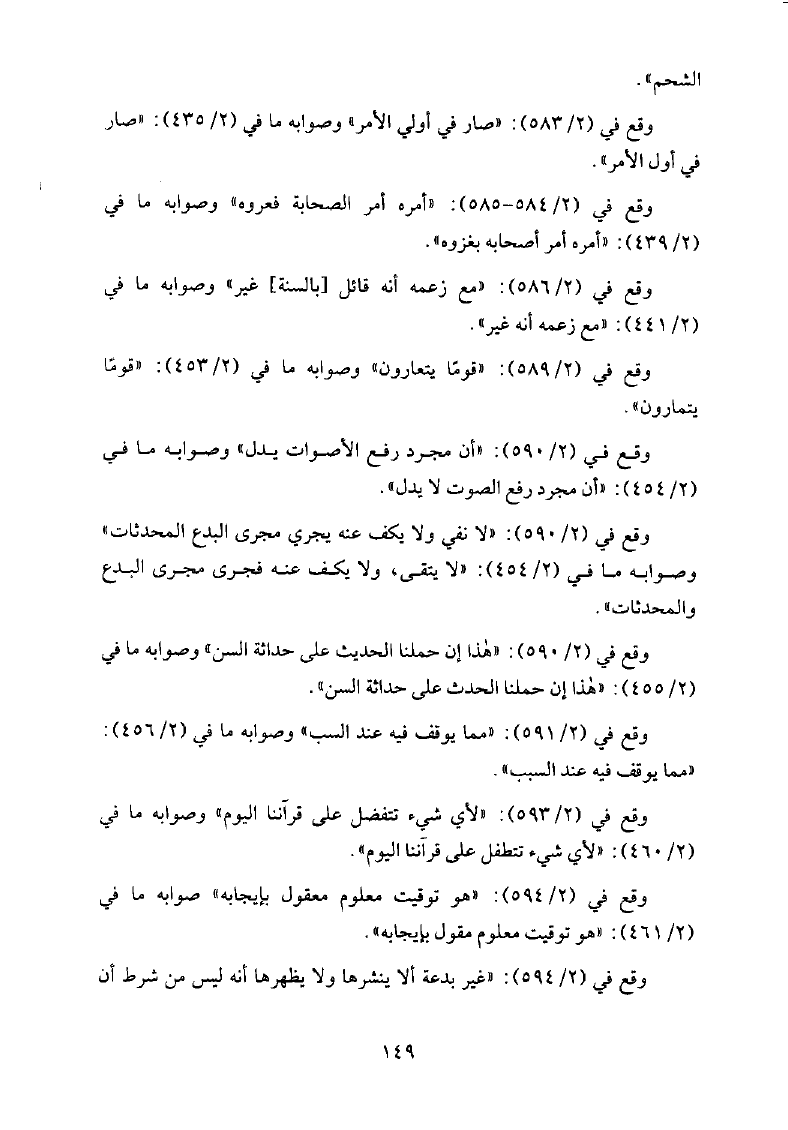 الشحم».
وقع في (٢/ ٥٨٣): «صار في أولي الأمر» وصوابه ما في (٢/ ٤٣٥): «صار
في أول الأمر».
وقع في (٢/ ٥٨٤-٥٨٥): «أمره أمر الصحابة فعروه» وصوابه ما في
(٢/ ٤٣٩): «أمره أمر أصحابه بغزوه».
وقع في (٢/ ٥٨٦): «مع زعمه أنه قائل [بالسنة] غير» وصوابه ما في
(٢/ ٤٤١): «مع زعمه أنه غير».
وقع في (٢/ ٥٨٩): «قومًا يتعارون» وصوابه ما في (٢/ ٤٥٣): «قومًا
يتمارون».
وقع في (٢/ ٥٩٠): «أن مجرد رفع الأصوات يدل» وصوابه ما في
(٢/ ٤٥٤): «أن مجرد رفع الصوت لا يدل».
وقع في (٢/ ٥٩٠): «لا نفي ولا يكف عنه يجري مجرى البدع المحدثات»
وصوابه ما في (٢/ ٤٥٤): «لا يتقى، ولا يكف عنه فجرى مجرى البدع
والمحدثات».
وقع في (٢/ ٥٩٠): «هٰذا إن حملنا الحديث على حداثة السن» وصوابه ما في
(٢/ ٤٥٥): «هٰذا إن حملنا الحدث على حداثة السن».
وقع في (٢/ ٥٩١): «مما يوقف فيه عند السب» وصوابه ما في (٢/ ٤٥٦):
«مما يوقف فيه عند السبب».
وقع في (٢/ ٥٩٣): «لأي شيء تتفضل على قرآننا اليوم» وصوابه ما في
(٢/ ٤٦٠): «لأي شيء تتطفل على قرآننا اليوم».
وقع في (٢/ ٥٩٤): «هو توقيت معلوم معقول بإيجابه» صوابه ما في
(٢/ ٤٦١): «هو توقيت معلوم مقول بإيجابه».
وقع في (٢/ ٥٩٤): «غير بدعة ألا ينشرها ولا يظهرها أنه ليس من شرط أن
١٤٩